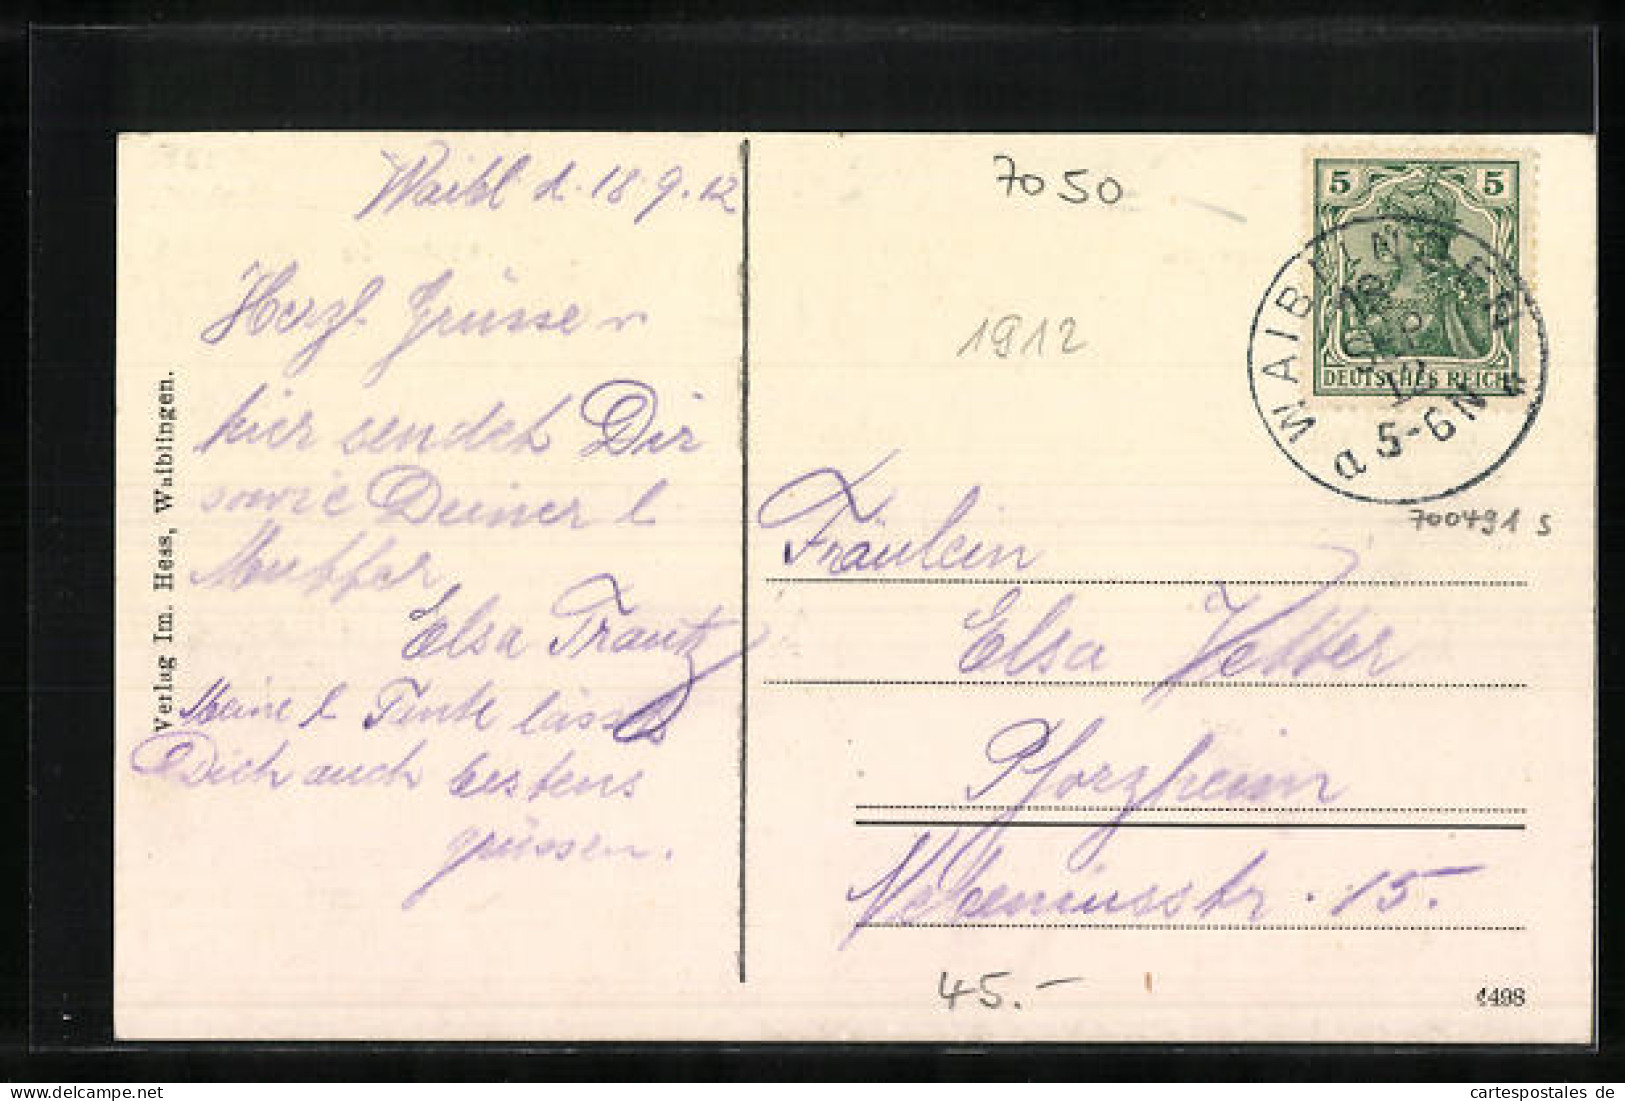 Waibl d. 18.9.12
Herzl. Grüsse v
hier sendet Dir
sowie Deiner l.
Mutter
Elsa Trautz
Meine l. Tante lässt
Dich auch bestens
grüssen.
Verlag Im. Hess, Waiblingen.
7050
1912
5 5
DEUTSCHES REICH
WAIBLINGEN
18
SEP
12
a 5-6N
700491 S
Fräulein
Elsa Vetter
Pforzheim
15.
45.-
4498
delcampe.net
cartespostales de